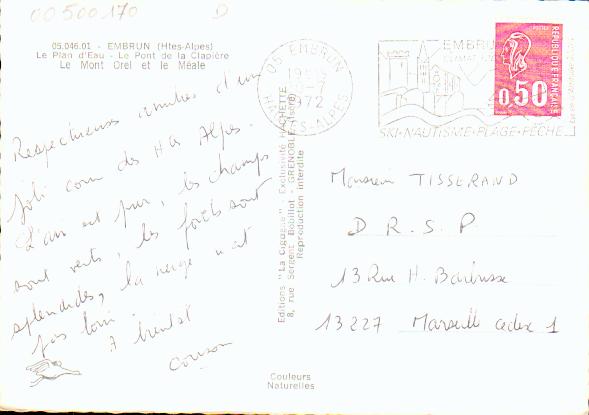 00500170 D
05.046.01 - EMBRUN (Htes-Alpes)
Le Plan d'Eau - Le Pont de la Clapière
Le Mont Orel et le Méale
Respectueuses amitiés d'un
joli coin des Htes Alpes.
L'air est pur, les champs
sont verts, les forêts sont
splendides, la neige n'est
pas loin.
A bientôt
Editions "La Cigogne" - Exclusivité HACHETTE
8, rue Sergent Bobillot - GRENOBLE (Isère)
Reproduction interdite
Couleurs
Naturelles
05 EMBRUN
1972
HAUTES-ALPES
EMBRUN
SKI·NAUTISME·PLAGE·PÊCHE
POSTES
0,50
REPUBLIQUE FRANÇAISE
Monsieur TISSERAND
D.R.S.P
13 Rue H. Barbusse
13227 Marseille cedex 1